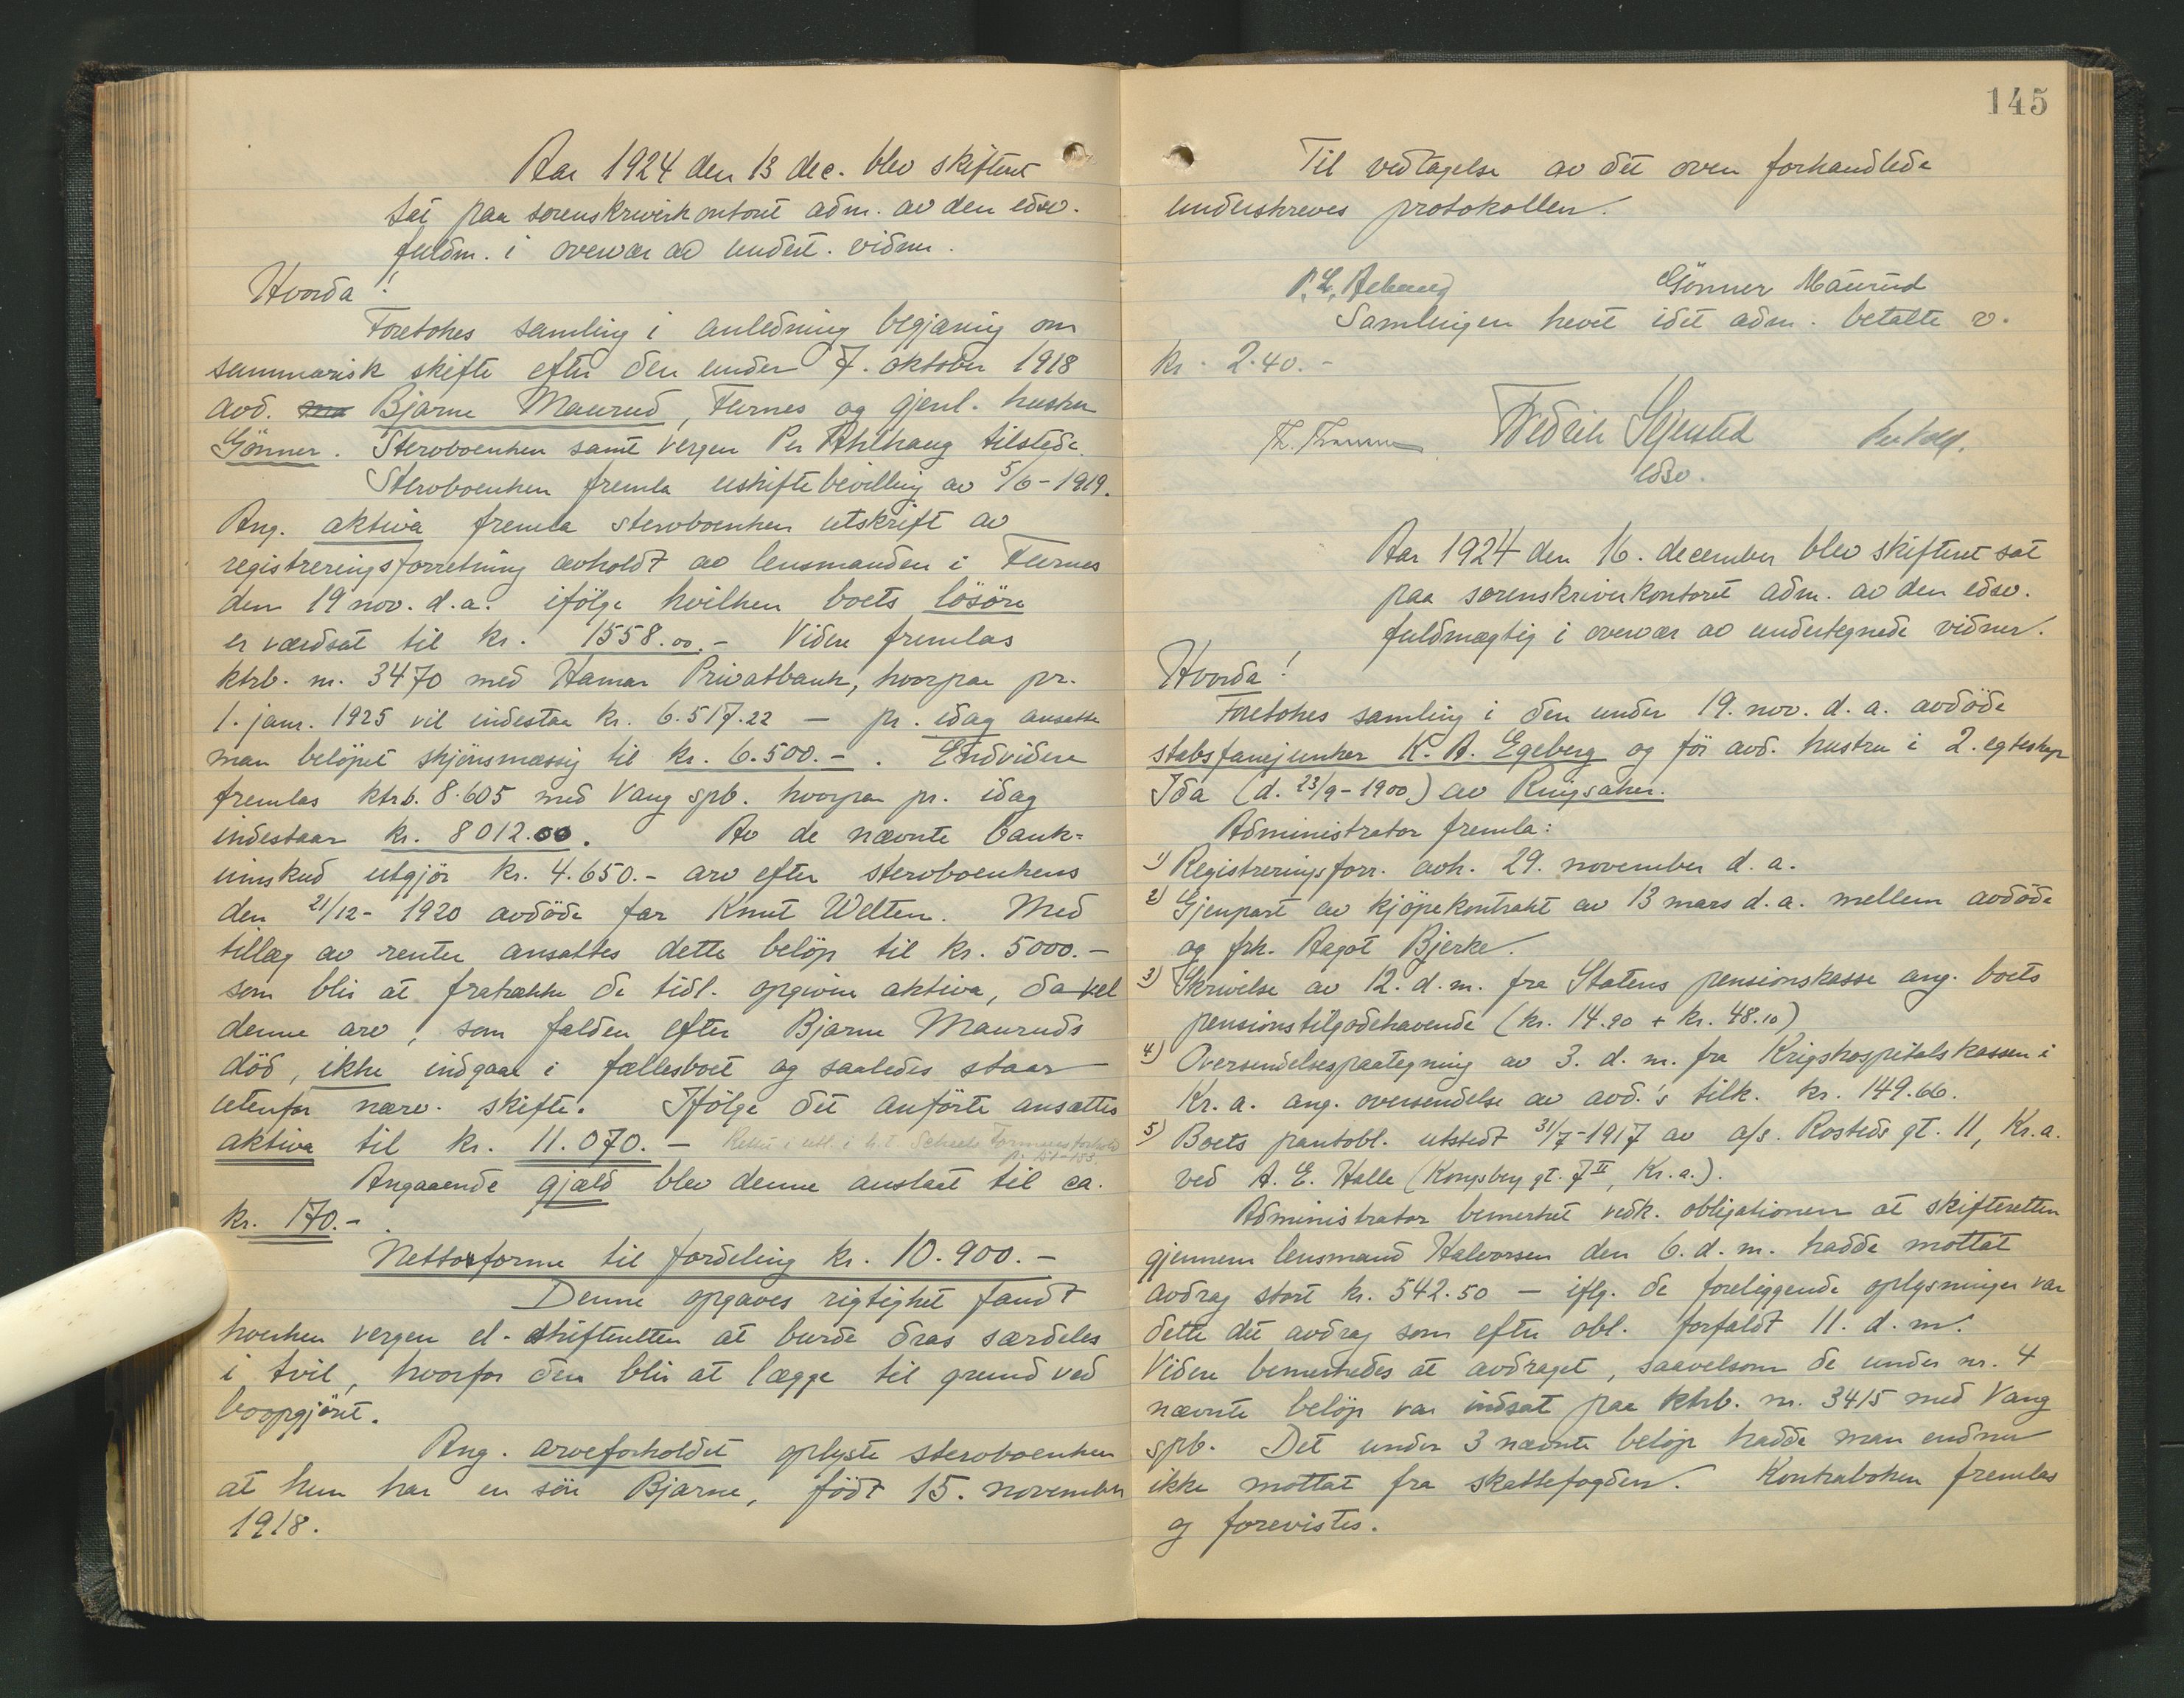 Aar 1924 den 13 dec. blev skifteret
sat paa sorenskriverkontoret adm. av den edsv.
fuldm. i overvær av undert. vidner.
Hvorda!
Foretokes samling i anledning begjæring om
summarisk skifte efter den under 7. oktober 1918
avd. Bjarne Maurud, Furnes og gjenl. hustru
Gönner. Stervboenken samt vergen Per Ahlhaug tilstede.
Stervboenken fremla uskiftebevilling av 5/6-1919.
Ang. aktiva fremla stervboenken utskrift av
registreringsforretning avholdt av lensmanden i Furnes
den 19 nov. d.a. ifölge hvilken boets lösöre
er værdsat til kr. 1558.00.- Videre fremlas
ktrb. nr. 3470 med Hamar Privatbank, hvorpaa pr.
1. janr. 1925 vil indestaa kr. 6.517.22 - pr. idag ansatte
man belöpet skjönsmæssig til kr. 6.500.-. Endvidere
fremlas ktrb. 8.605 med Vang spb. hvorpaa pr. idag
indestaar kr. 8012.00. Av de nævnte bank=
innskud utgjör kr. 4.650.- arv efter stervboenkens
den 21/12-1920 avdöde far Knut Welten. Med
tillæg av renter ansattes dette belöp til kr. 5000.-
som blir at fratrække de tidl. opgivne aktiva, da
denne arv, som falden efter Bjarne Mauruds
död, ikke indgaar i fællesboet og saaledes staar
utenfor nærv. skifte. Ifölge det anförte ansættes
aktiva til kr. 11.070.-
Angaaende gjæld blev denne anslaat til ca.
kr. 170.-.
Nettoformue til fordeling kr. 10.900.-
Denne opgaves rigtighet fandt
hverken vergen el. skifteretten at burde dras særdeles
i tvil, hvorfor den blir at lægge til grund ved
boopgjöret.
Ang. arveforholdet oplyste stervboenken
at hun har en sön Bjarne, födt 15. november
1918.
145
Til vedtagelse av det oven forhandlede
underskreves protokollen.
Gönner Maurud
Samlingen hevet idet adm. betalte v.
kr. 2.40.-
Fredrik
edsv.
Aar 1924 den 16. december blev skifteret sat
paa sorenskriverkontoret adm. av den edsv.
fuldmægtig i overvær av undertegnede vidner.
Hvorda!
Foretokes samling i den under 19. nov. d.a. avdöde
stabsfanejunker K. A. Egeberg og för avd. hustru i 2. egteskap
Ida (d. 23/9-1900) av Ringsaker.
Administrator fremla:
1) Registreringsforr. avh. 29. november d.a.
2) Gjenpart av kjöpekontrakt av 13 mars d.a. mellem avdöde
og frk. Aagot Bjerke.
3) Skrivelse av 12. d.m. fra Statens pensionskasse ang. boets
pensionstilgodehavende (kr. 14.90 + kr. 48.10)
4) Oversendelsespaategning av 3. d.m. fra Krigshospitalskassen i
Kr.a. ang. oversendelse av avd.'s tilk. kr. 149.66.
5) Boets pantobl. utstedt 31/7-1917 av a/s. Rosteds gt. 11, Kr.a.
ved A. E. Halle (Kongsberg gt. 7 II, Kr.a.).
Administrator bemerket vedk. obligationen at skifteretten
gjennem lensmand Halvorsen den 6. d.m. hadde mottat
avdrag stort kr. 542.50 - iflg. de foreliggende oplysninger var
dette det avdrag som efter obl. forfaldt 11. d.m.
Videre bemerkedes at avdraget, saavelsom de under nr. 4
nævnte belöp var indsat paa ktrb. nr. 3415 med Vang
spb. Det under 3 nævnte belöp hadde man endnu
ikke mottat fra skattefogden. Kontraboken fremlas
og forevistes.